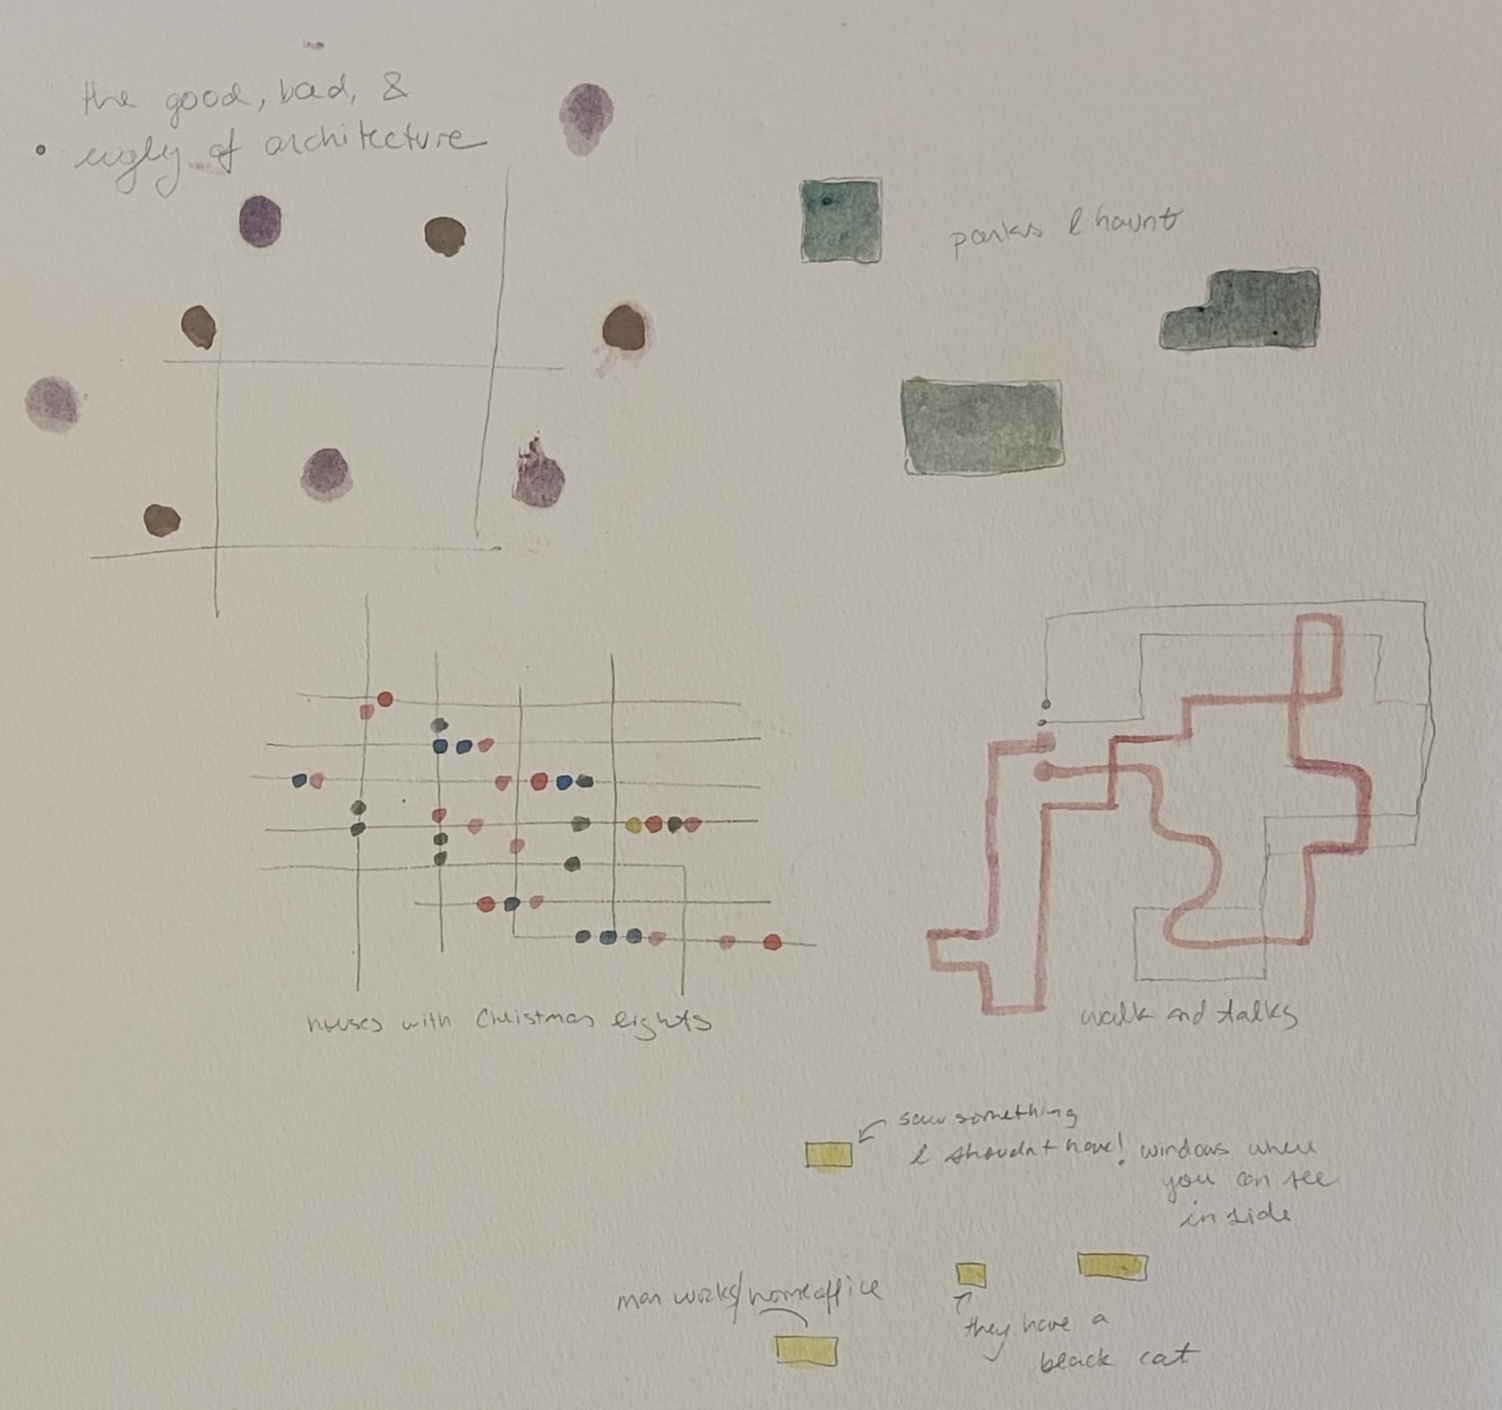 the good, bad, &
ugly of architecture
parks I haunt
houses with Christmas lights
walk and talks
saw something
I shouldn't have!
windows where
you can see
inside
man works/home office
they have a
black cat